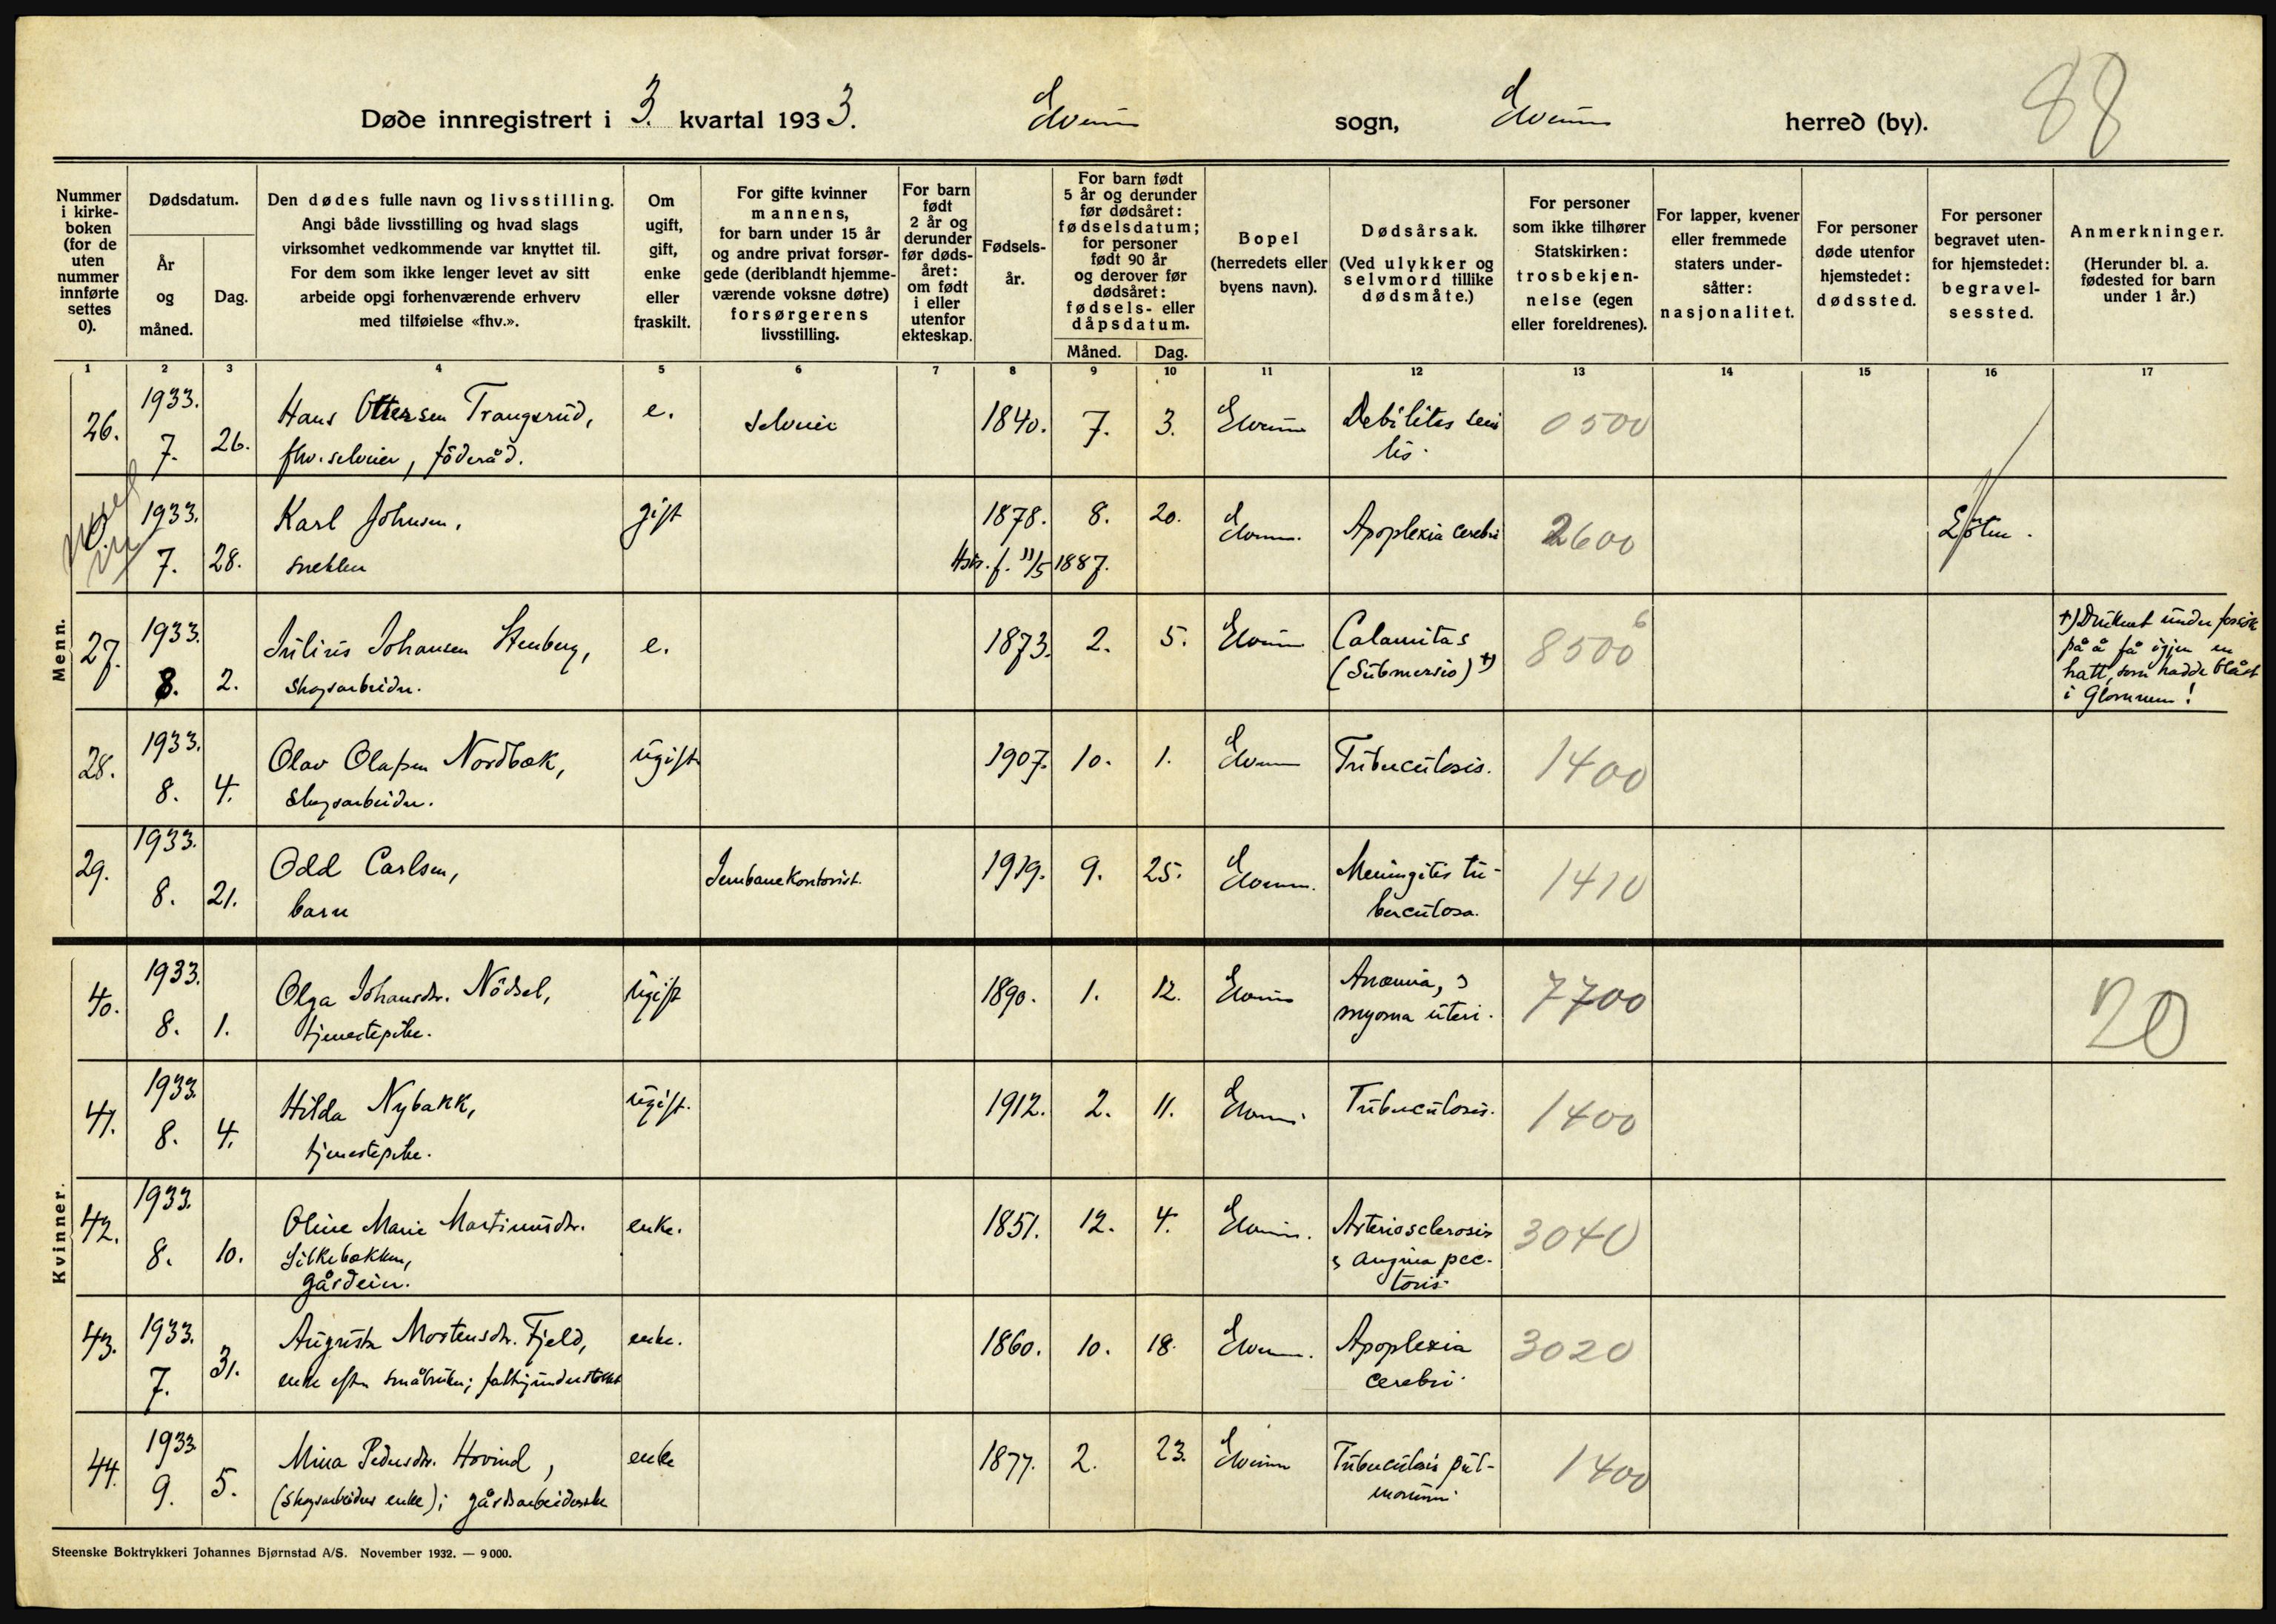 88
Døde innregistrert i 3. kvartal 1933. Elverum sogn, Elverum herred (by).
Nummer i kirke- boken (for de uten nummer innførte settes 0).
Dødsdatum.
År og måned.
Dag.
Den dødes fulle navn og livsstilling.
Angi både livsstilling og hvad slags
virksomhet vedkommende var knyttet til.
For dem som ikke lenger levet av sitt
arbeide opgi forhenværende erhverv
med tilføielse «fhv.».
Om ugift, gift, enke eller fraskilt.
For gifte kvinner mannens, for barn under 15 år og andre privat forsør- gede (deriblandt hjemme- værende voksne døtre) forsørgerens livsstilling.
For barn født 2 år og derunder før døds- året: om født i eller utenfor ekteskap.
Fødsels- år.
For barn født 5 år og derunder før dødsåret: fødselsdatum; for personer født 90 år og derover før dødsåret: fødsels- eller dåpsdatum.
Måned. Dag.
Bopel (herredets eller byens navn).
Dødsårsak. (Ved ulykker og selvmord tillike dødsmåte.)
For personer som ikke tilhører Statskirken: trosbekjen- nelse (egen eller foreldrenes).
For lapper, kvener eller fremmede staters under- såtter: nasjonalitet.
For personer døde utenfor hjemstedet: dødssted.
For personer begravet uten- for hjemstedet: begravel- sessted.
Anmerkninger. (Herunder bl. a. fødested for barn under 1 år.)
1 2 3 4 5 6 7 8 9 10 11 12 13 14 15 16 17
Menn.
26. 1933. 7. 26. Hans Ottersen Trangsrud, e. selveier 1840. 7. 3. Elverum Debilitas seni 0500
fhv. selveier, föderåd. lis.
1933. 7. 28. Karl Johnsen, gift 1878. 8. 20. Elverum. Apoplexia cerebri 2600 Löten.
snekker f. 11/5 1887.
27. 1933. 8. 2. Julius Johansen Stenberg, e. 1873. 2. 5. Elverum Calamitas 8500 6
skogsarbeider. (Submersio) +)
+) Druknet under forsök
på å få igjen en
hatt, som hadde blåst
i Glommen!
28. 1933. 8. 4. Olav Olafsen Nordbæk, ugift 1907. 10. 1. Elverum Tuberculosis. 1400
skogsarbeider.
29. 1933. 8. 21. Odd Carlsen, Jernbanekontorist. 1919. 9. 25. Elverum. Meningitis tu- 1410
barn berculosa.
Kvinner.
40. 1933. 8. 1. Olga Johansdr. Nödsel, ugift 1890. 1. 12. Elverum Anæmia, 7700 20
tjenestepike. myoma uteri.
41. 1933. 8. 4. Hilda Nybakk, ugift. 1912. 2. 11. Elverum Tuberculosis. 1400
tjenestepike.
42. 1933. 8. 10. Oline Marie Martinusdr. enke. 1851. 12. 4. Elverum. Arteriosclerosis 3040
Silkebækken, angina pec-
gårdeier. toris.
43. 1933. 7. 31. Augusta Mortensdr. Fjeld, enke. 1860. 10. 18. Elverum. Apoplexia 3020
enke efter småbruker; fattigunderstöttet cerebri.
44. 1933 9. 5. Mina Pedersdr. Hovind, enke 1877. 2. 23. Elverum Tuberculosis pul- 1400
(skogsarbeiders enke); gårdsarbeiderske monum.
Steenske Boktrykkeri Johannes Bjørnstad A/S. November 1932. — 9000.